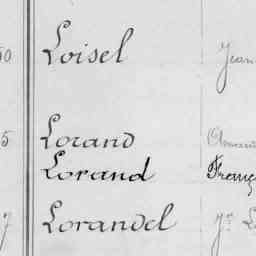 Loisel Jean
5 Lorand Amand
Lorand Franç
7 Lorandel